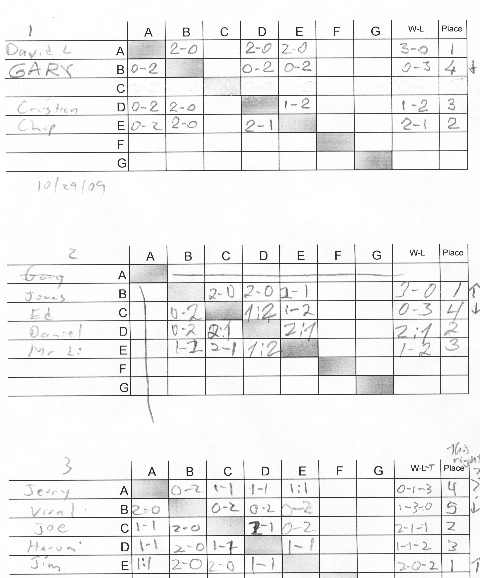 1 A B C D E F G W-L Place
David L A 2-0 2-0 2-0 3-0 1
GARY B 0-2 0-2 0-2 0-3 4 ↓
C
Cristian D 0-2 2-0 1-2 1-2 3
Chip E 0-2 2-0 2-1 2-1 2
F
G
10/29/09
2 A B C D E F G W-L Place
Gary A
Jonas B 2-0 2-0 3-0 1 ↑
Ed C 0-2 1:2 1-2 0-3 4 ↓
Daniel D 0-2 2:1 2:1 2:1 2
Mr Li E 2-1 1:2 1-2 3
F
G
This right?
3 A B C D E F G W-L-T Place
Jerry A 0-2 1-1 1-1 1:1 0-1-3 4 ?
Viral B 2-0 0-2 0-2 0-2 1-3-0 5 ↓
Joe C 1-1 2-0 0-2 2-1-1 2
Harumi D 1-1 2-0 1-1 1-1-2 3
Jim E 1:1 2-0 2-0 1-1 2-0-2 1 ↑